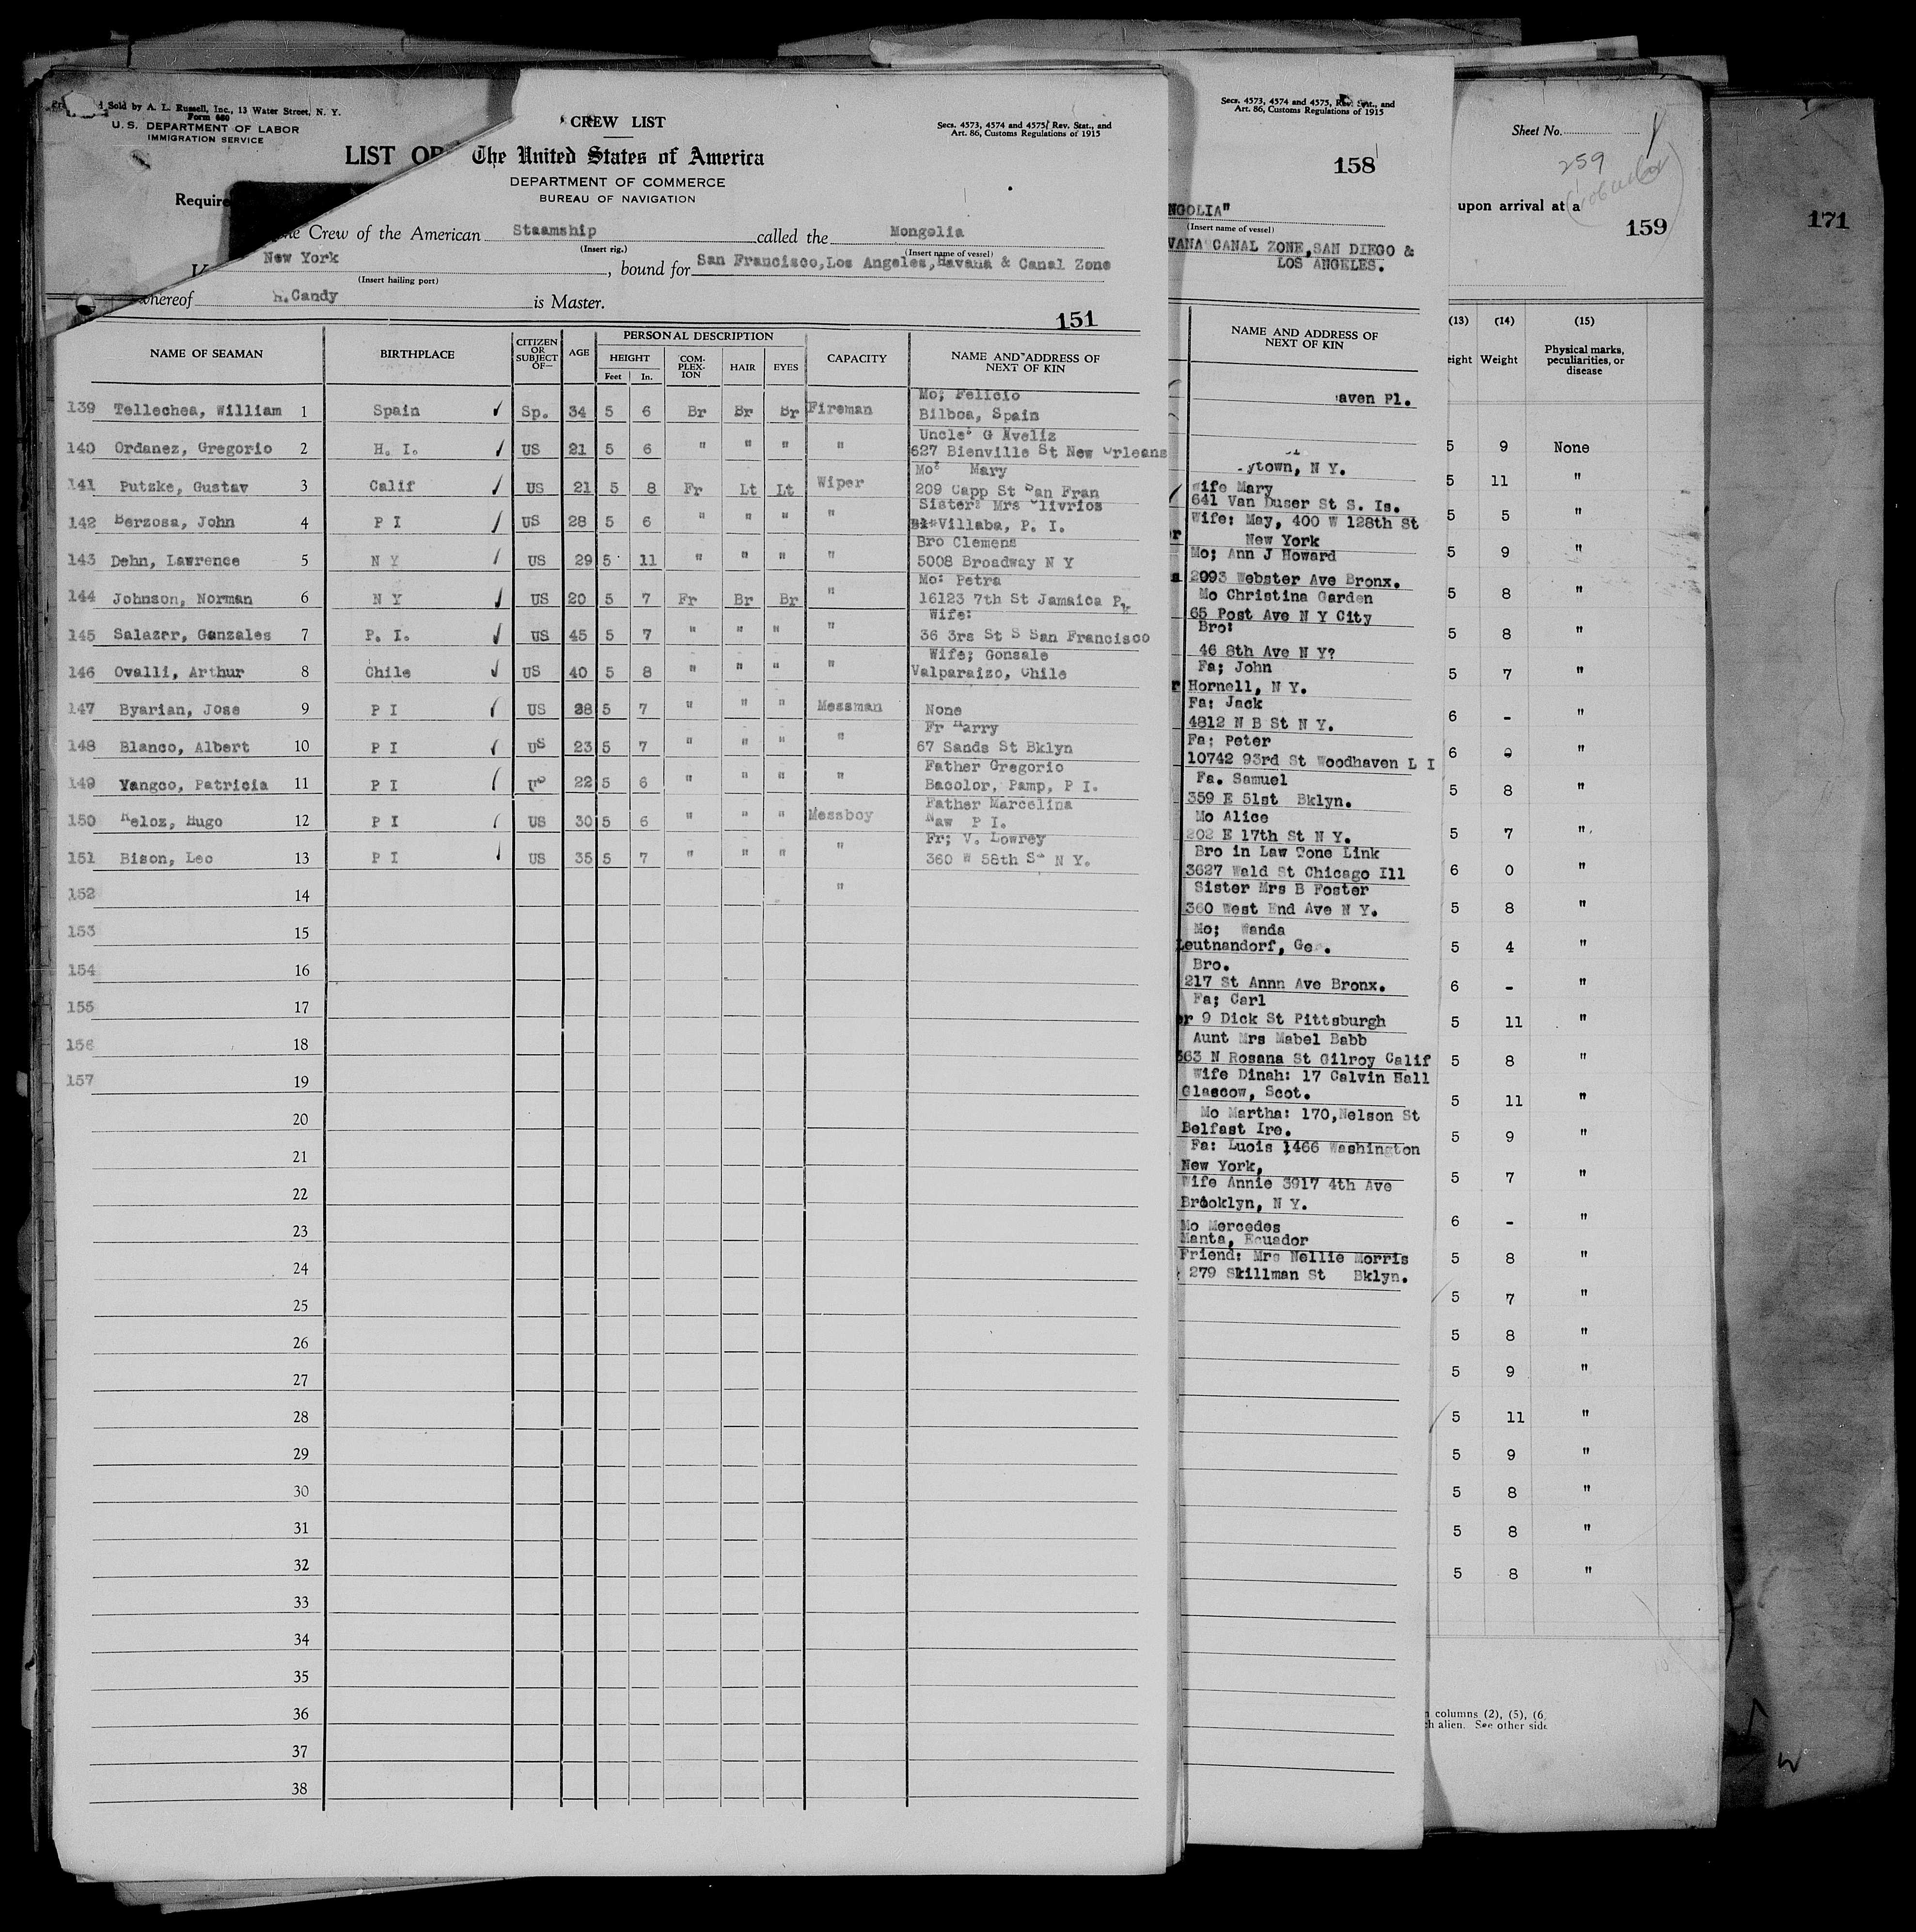 Sold by A. L. Russell, Inc., 13 Water Street, N. Y.
Form 680
U. S. DEPARTMENT OF LABOR
IMMIGRATION SERVICE
LIST OF
Require
CREW LIST
Secs. 4573, 4574 and 4575, Rev. Stat., and
Art. 86, Customs Regulations of 1915
The United States of America
DEPARTMENT OF COMMERCE
BUREAU OF NAVIGATION
the Crew of the American Staamship called the Mongolia
(Insert rig.) (Insert name of vessel)
New York, bound for San Francisco,Los Angeles,Havana & Canal Zone
(Insert hailing port)
whereof H.Candy is Master.
151
NAME OF SEAMAN BIRTHPLACE CITIZEN OR SUBJECT OF— AGE PERSONAL DESCRIPTION CAPACITY NAME AND ADDRESS OF NEXT OF KIN
HEIGHT COM-PLEX-ION HAIR EYES
Feet In.
139 Tellechea, William 1 Spain Sp. 34 5 6 Br Br Br Fireman Mo; Felicio
Bilboa, Spain
140 Ordanez, Gregorio 2 H. I. US 21 5 6 " " " " Uncle: G Nveliz
627 Bienville St New Orleans
141 Putzke, Gustav 3 Calif US 21 5 8 Fr Lt Lt Wiper Mo: Mary
209 Capp St San Fran
142 Berzosa, John 4 P I US 28 5 6 " " " " Sister: Mrs Olivrios
Villaba, P. I.
143 Dehn, Lawrence 5 N Y US 29 5 11 " " " " Bro Clemens
5008 Broadway N Y
144 Johnson, Norman 6 N Y US 20 5 7 Fr Br Br " Mo: Petra
16123 7th St Jamaica Pk
145 Salazar, Gonzales 7 P. I. US 45 5 7 " " " " Wife:
36 3rs St S San Francisco
146 Ovalli, Arthur 8 Chile US 40 5 8 " " " " Wife; Gonsale
Valparaizo, Chile
147 Byarian, Jose 9 P I US 28 5 7 " " " Messman None
148 Blanco, Albert 10 P I US 23 5 7 " " " " Fr Harry
67 Sands St Bklyn
149 Yangco, Patricia 11 P I US 22 5 6 " " " " Father Gregorio
Bacolor, Pamp, P I.
150 Reloz, Hugo 12 P I US 30 5 6 " " " Messboy Father Marcelina
Naw P I.
151 Bison, Leo 13 P I US 35 5 7 " " " " Fr; V. Lowrey
360 W 58th St N Y.
152 14 "
153 15
154 16
155 17
156 18
157 19
20
21
22
23
24
25
26
27
28
29
30
31
32
33
34
35
36
37
38
Secs. 4573, 4574 and 4575, Rev. Stat., and
Art. 86, Customs Regulations of 1915
158
NGOLIA"
(Insert name of vessel)
VANA CANAL ZONE,SAN DIEGO &
LOS ANGELES.
NAME AND ADDRESS OF
NEXT OF KIN
aven Pl.
ytown, N Y.
Wife Mary
641 Van Duser St S. Is.
Wife: May, 400 W 128th St
New York
Mo; Ann J Howard
2093 Webster Ave Bronx.
Mo Christina Garden
65 Post Ave N Y City
Bro:
46 8th Ave N Y?
Fa; John
Hornell, N Y.
Fa: Jack
4812 N B St N Y.
Fa; Peter
10742 93rd St Woodhaven L I
Fa. Samuel
359 E 51st Bklyn.
Mo Alice
202 E 17th St N Y.
Bro in Law Tone Link
3627 Wald St Chicago Ill
Sister Mrs B Foster
360 West End Ave N Y.
Mo; Wanda
Leutnandorf, Ge .
Bro.
217 St Annn Ave Bronx.
Fa; Carl
9 Dick St Pittsburgh
Aunt Mrs Mabel Babb
563 N Rosana St Gilroy Calif
Wife Dinah: 17 Calvin Hall
Glascow, Scot.
Mo Martha: 170,Nelson St
Belfast Ire.
Fa: Luois 1466 Washington
New York,
Wife Annie 3917 4th Ave
Brooklyn, N Y.
Mo Mercedes
Manta, Ecuador
Friend: Mrs Nellie Morris
279 Skillman St Bklyn.
Sheet No.
259
upon arrival at a
159
(13) (14) (15)
eight Weight Physical marks, peculiarities, or disease
5 9 None
5 11 "
5 5 "
5 9 "
5 8 "
5 8 "
5 7 "
6 - "
6 "
5 8 "
5 7 "
6 0 "
5 8 "
5 4 "
6 - "
5 11 "
5 8 "
5 11 "
5 9 "
5 7 "
6 - "
5 8 "
5 7 "
5 8 "
5 9 "
5 11 "
5 9 "
5 8 "
5 8 "
5 8 "
columns (2), (5), (6
h alien. See other side
171